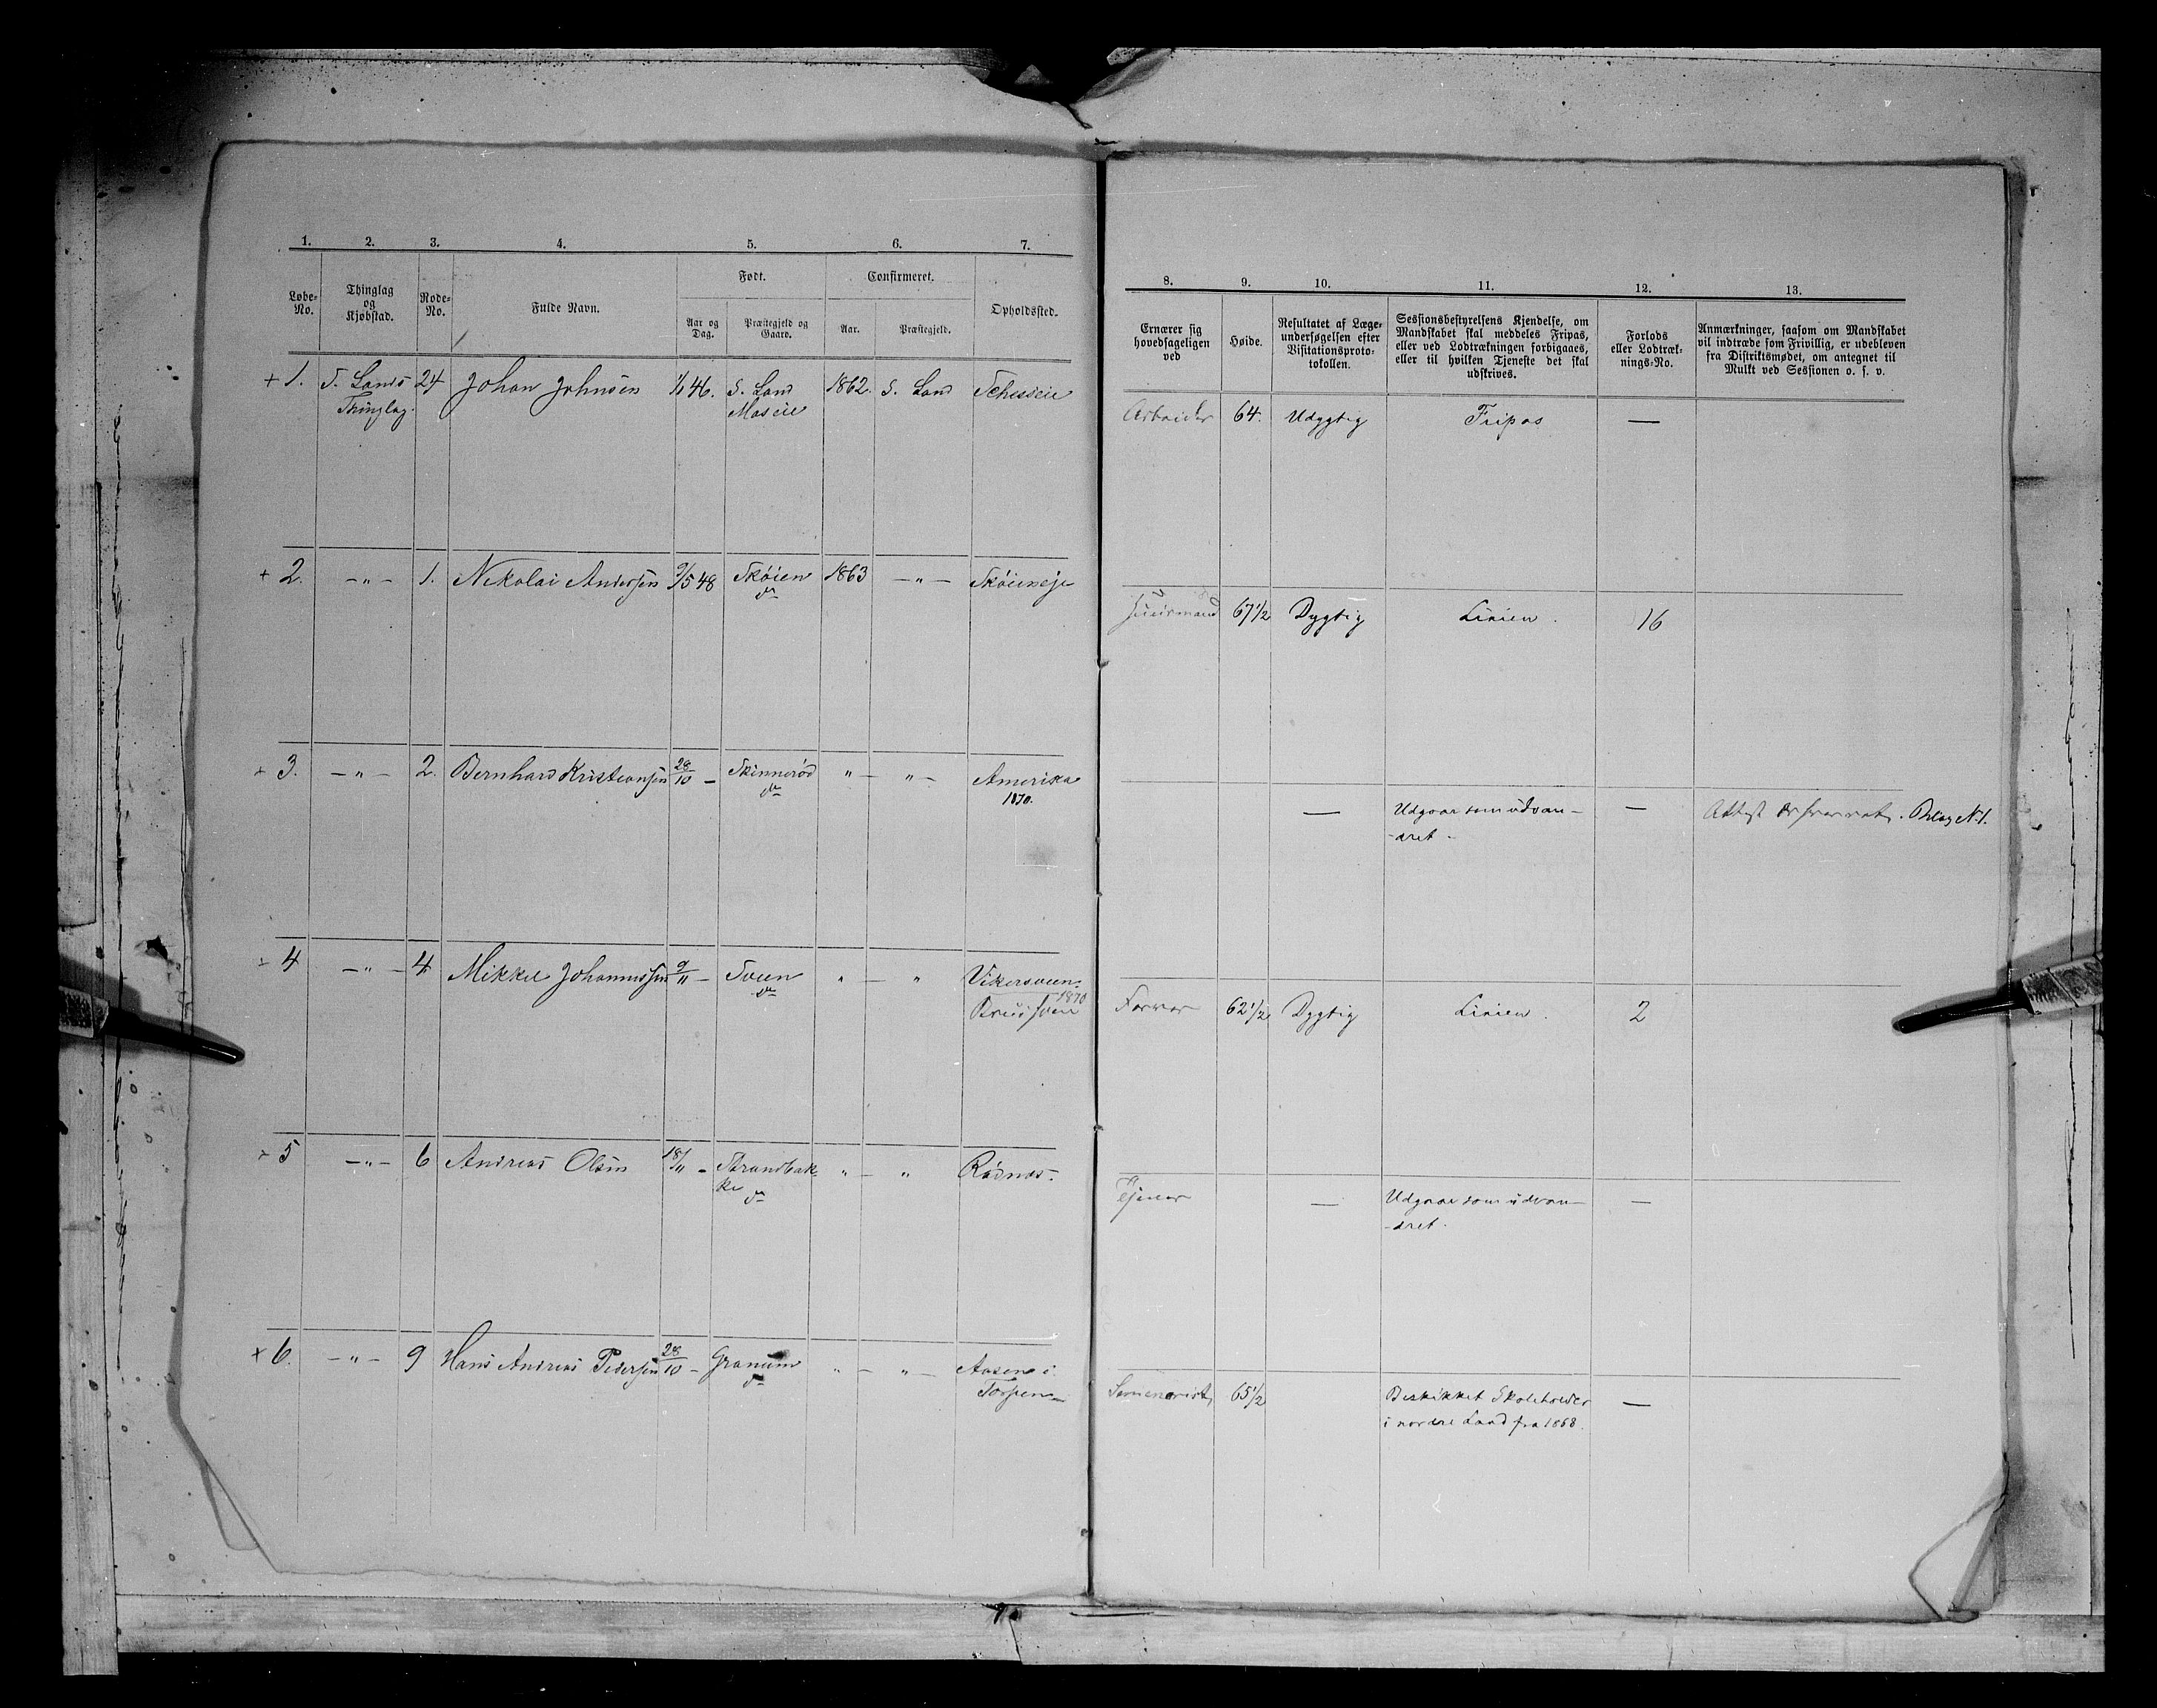 1. 2. 3. 4. 5. 6. 7.
Løbe-No. Thinglag og Kjøbstad. Rode-No. Fulde Navn. Født. Confirmeret. Opholdssted.
Aar og Dag. Præstegjeld og Gaard. Aar. Præstegjeld.
+ 1. S. Lands 24 Johan Johnsen 1/1 46. S. Land 1862. S. Land
Thinglag. Moseie
+ 2. -"- 1. Nikolai Andersen 9/5 48 Skøien 1863 -"- Skøieneje
do
3. -"- 2. Bernhard Kristiansen 28/10 - Skinnerød " - " - Amerika
do 1870.
4 -"- 4 Mikkel Johannessen 9/11 - Sveen " - " Vikersveen
do 1870
5 -"- 6 Andreas Olsen 18/11 - Strandbak- " - " Rødnæs.
ke do
+ 6. -"- 9 Hans Andreas Pedersen 28/10 - Granum " - " - Aasen i
do Torpen
8. 9. 10. 11. 12. 13.
Ernærer sig hovedsageligen ved
Høide.
Resultatet af Læge-
undersøgelsen efter
Visitationsproto-
tokollen.
Sessionsbestyrelsens Kjendelse, om
Mandskabet skal meddeles Fripas,
eller ved Lodtrækningen forbigaaes,
eller til hvilken Tjeneste det skal
udskrives.
Forlods
eller Lodtræk-
nings-No.
Anmærkninger, saasom om Mandskabet
vil indtræde som Frivillig, er udebleven
fra Distriktsmødet, om antegnet til
Mulkt ved Sessionen o. s. v.
Arbeider 64. Udygtig Fripas —
67 1/2 Dygtig Linien. 16
— Udgaar som udvan- — Attest Bilag N. 1.
-dret -
Farver 62 1/2 Dygtig Linien. 2
Tjener — Udgaar som udvan- —
-dret.
Semenarist, 65 1/2 Beskikket Skoleholder —
i nordre Land fra 1868.